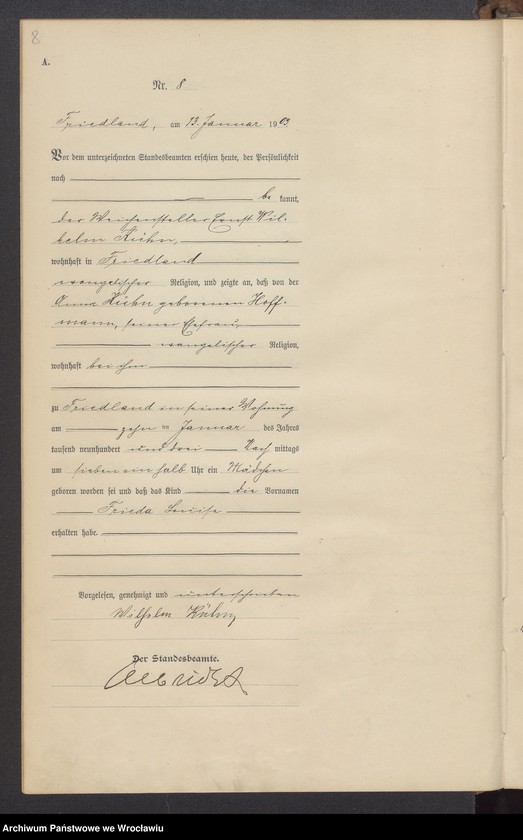 8
A.
Nr. 8
Friedland, am 13. Januar 1903
Vor dem unterzeichneten Standesbeamten erschien heute, der Persönlichkeit
nach
be kannt,
der Weichensteller Ernst Wil-
helm Kühn,
wohnhaft in Friedland
evangelischer Religion, und zeigte an, daß von der
Anna Kühn geborenen Hoff-
mann, seiner Ehefrau,
evangelischer Religion,
wohnhaft bei ihm
zu Friedland in seiner Wohnung
am zehn ten Januar des Jahres
tausend neunhundert und drei Nach mittags
um sieben ein halb Uhr ein Mädchen
geboren worden sei und daß das Kind die Vornamen
Frieda Louise
erhalten habe.
Vorgelesen, genehmigt und unterschrieben
Wilhelm Kühn
Der Standesbeamte.
Archiwum Państwowe we Wrocławiu